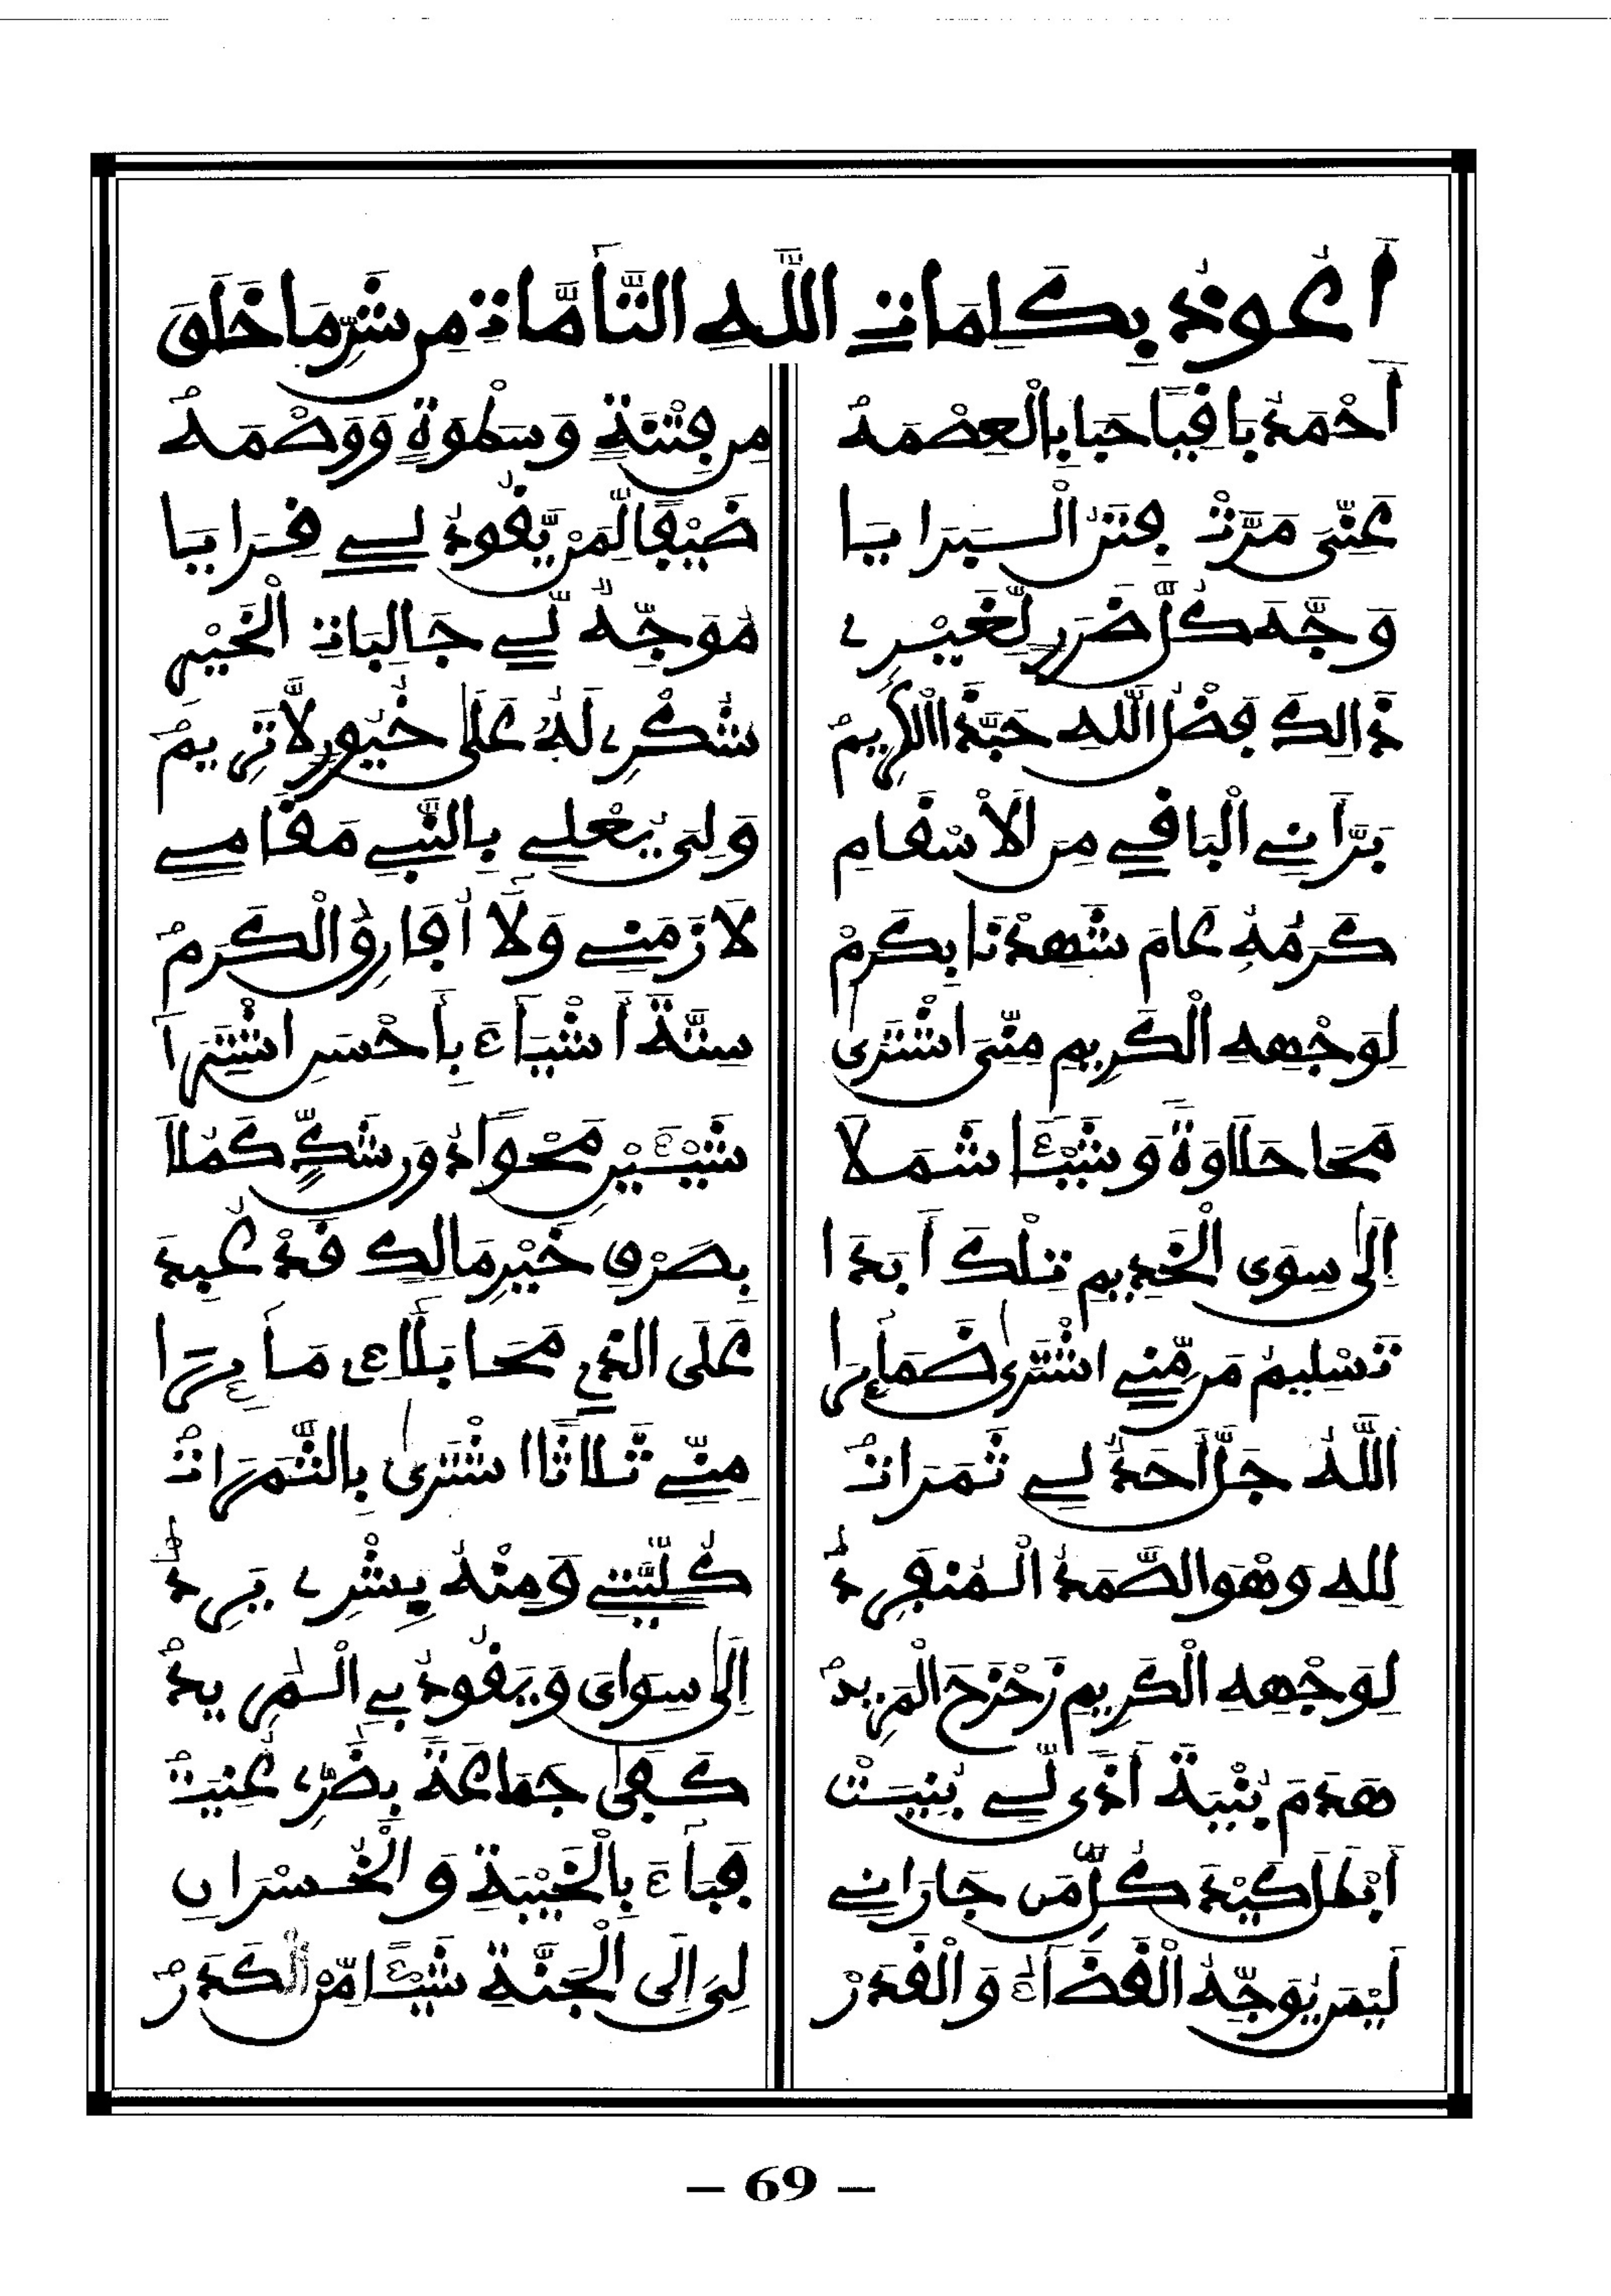 أَعُوذُ بِكَلِمَاتِ اللَّهِ التَّآمَّاتِ مِن شَرِّ مَا خَلَقَ
أَحْمَدُ بَاقِيًا حَبَا بِالْعِصْمَهْ مِن فِتْنَةٍ وَسَطْوَةٍ وَوَصْمَهْ
عَنِّي مَرَّتْ فِتَنُ الْبَرَايَا ضَيْفًا لَّمَنْ يَّقُودُ لِي قِرَايَا
وَجَّهَ كُلَّ ضَرَرٍ لِّغَيْرِي مُوَجِّهٌ لِّي جَالِبَاتِ الْخَيْرِ
ذَالِكَ فَضْلُ اللهِ حَبَّذَا الْكَرِيمْ شُكْرِي لَهُ عَلَى خُيُورٍ لَّا تَرِيمْ
بَرَّأَنِي الْبَاقِي مِنَ الْأَسْقَامِ وَلِيَ يُعْلِي بِالنَّبِي مَقَامِي
كَرَمُهُ عَامَ شَهِدْنَا بِكَرَمْ لَازَمَنِي وَلَآ أُفَارِقُ الْكَرَمْ
لِوَجْهِهِ الْكَرِيمِ مِنِّيَ اشْتَرَى سِتَّةَ أَشْيَآءَ بِأَحْسَنِ اشْتِرَآ
مَحَا حَلَاوَةً وَشَيْئًا شَمَلَا شَيْئَيْنِ مَحْوًا دُونَ شَكٍّ كَمُلَا
إِلَى سِوَى الْخَدِيمِ تِلْكَ أَبَدَا بِصَرْفِ خَيْرِ مَالِكٍ قَدْ عُبِدَ
تَسْلِيمُ مَن مِّنِّي اشْتَرَى ضَمَآئِرَا عَلَى الَّذِي مَحَا بَلَآئِي مَآئِرَا
اللَّهُ جَلَّ أَحَدٌ لِي ثَمَرَاتْ مِنِّي ثَلَاثًا اشْتَرَى بِالثَّمَرَاتْ
لِلهِ وَهْوَ الصَّمَدُ الْمُنْفَرِدُ كُلِّيَّتِي وَمِنْهُ بِشْرِي يَرِدُ
لِوَجْهِهِ الْكَرِيمِ زَحْزَحَ الْمَرِيدْ إِلَى سِوَايَ وَيَقُودُ بِي الْمُرِيدْ
هَدَمَ بُنْيَةَ أَذًى لِّي بُنِيَتْ كَفَى جَمَاعَةً بِضُرِّي عُنِيَتْ
أَبْطَلَ كَيْدَ كُلِّ مَن جَارَانِي فَبَآءَ بِالْخَيْبَةِ وَالْخُسْرَانِ
لَيْسَ يُوَجِّهُ الْقَضَآءُ وَالْقَدَرْ لِيَ إِلَى الْجَنَّةِ شَيْئًا مِّنَ الْكَدَرْ
– 69 –